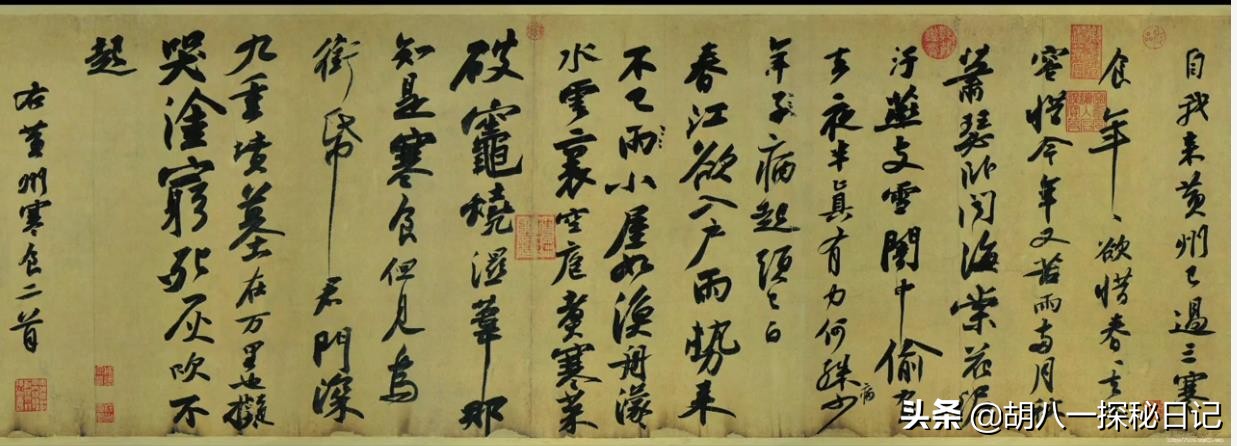 自我来黄州已過三寒
食年〻欲惜春〻去
容惜今年又苦雨两月秋
蕭瑟卧聞海棠花泥
汙燕支雪闇中偷
去夜半真有力何殊少
病
年子病起頭已白
春江欲入户雨勢来
不已雨小屋如漁舟濛
水雲裏空庖煮寒菜
破竈燒濕葦那
知是寒食但見烏
銜帋君門深
九重墳墓在万里也擬
哭塗窮死灰吹不
起
右黄州寒食二首
头条 @胡八一探秘日记